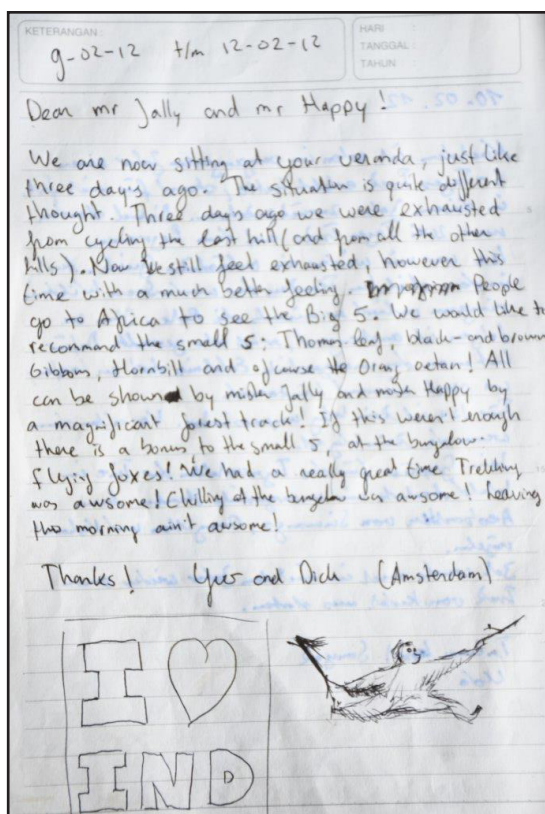 KETERANGAN :
9-02-12 t/m 12-02-12
HARI :
TANGGAL :
TAHUN :
Dear mr Jally and mr Happy!
We are now sitting at your veranda, just like
three day's ago. The situation is quite different
thought. Three days ago we were exhausted
from cycling the last hill (and from all the other
hills). Now we still feel exhausted, however this
time with a much better feeling. People
go to Africa to see the Big 5. We would like to
recommand the small 5: Thomas leaf, black- and brown
Gibbons, Hornbill and ofcourse the Orang oetan! All
can be shown by mister Jally and mister Happy by
a magnificant forest track! If this weren't enough
there is a bonus, to the small 5, at the bungelow:
flying foxes! We had a really great time. Trekking
was awsome! Chilling at the bungelow was awsome! Leaving
this morning ain't awsome!
Thanks! and Dick (Amsterdam)
I
IND